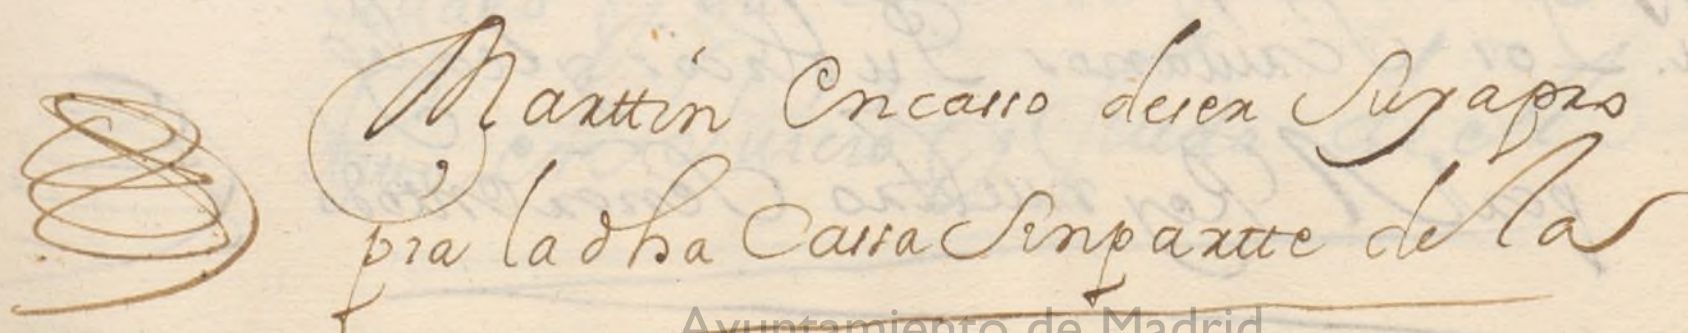 Marttin Encasso deser Suyapro
pia ladha Cassa Sinpartte de la
Ayuntamiento de Madrid